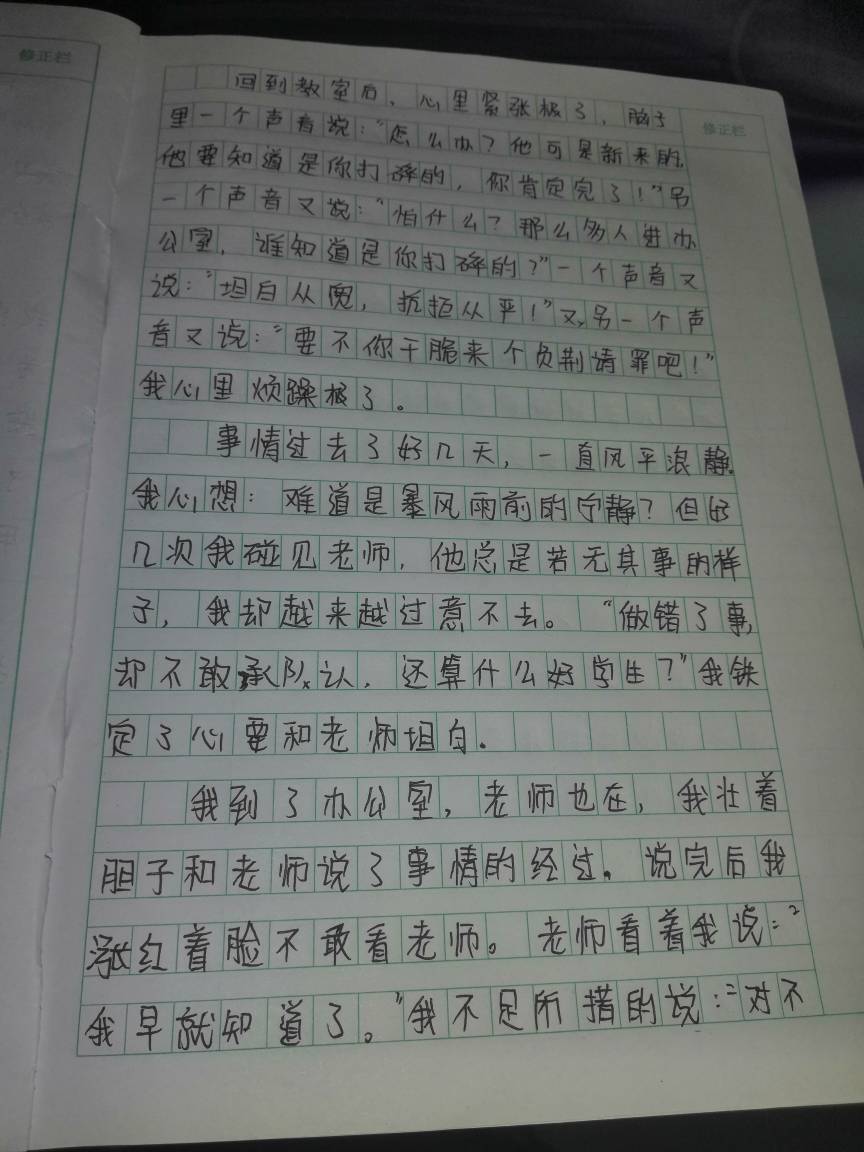 修正栏
修正栏
回到教室后，心里紧张极了，脑子
里一个声音说：“怎么办？他可是新来的，
他要知道是你打碎的，你肯定完了！”另
一个声音又说：“怕什么？那么多人进办
公室，谁知道是你打碎的？”一个声音又
说：“坦白从宽，抗拒从严！”又，另一个声
音又说：“要不你干脆来个负荆请罪吧！”
我心里烦躁极了。
事情过去了好几天，一直风平浪静。
我心想：难道是暴风雨前的宁静？但好
几次我碰见老师，他总是若无其事的样
子，我却越来越过意不去。“做错了事，
却不敢承认，还算什么好学生？”我铁
定了心要和老师坦白。
我到了办公室，老师也在，我壮着
胆子和老师说了事情的经过。说完后我
涨红着脸不敢看老师。老师看着我说：“
我早就知道了。”我不足所措的说：“对不